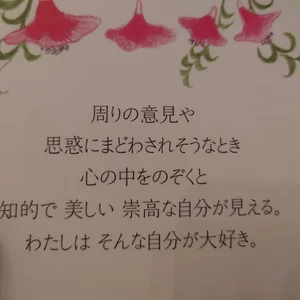 周りの意見や
思惑にまどわされそうなとき
心の中をのぞくと
知的で 美しい 崇高な自分が見える。
わたしは そんな自分が大好き。